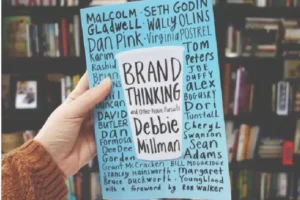 MALCOLM · SETH GODIN
GLADWELL · WALLY OLINS
Dan Pink · Virginia POSTREL
Karim
Rashid
Brian
Tom
Peters
JOE
DUFFY
ALEX
BOGUSKY
BRAND
THINKING
and Other Noble Pursuits
Debbie
Millman
DAVID
BUTLER
Dan
Formosa
DeeDee
Gordon
Dori
Tunstall
Cheryl
Swanson
Sean
Adams
Grant McCracken · BILL MOGGRIDGE
STANLEY HAINSWORTH · Margaret
Bruce Duckworth · Youngblood
with a foreword by Rob Walker